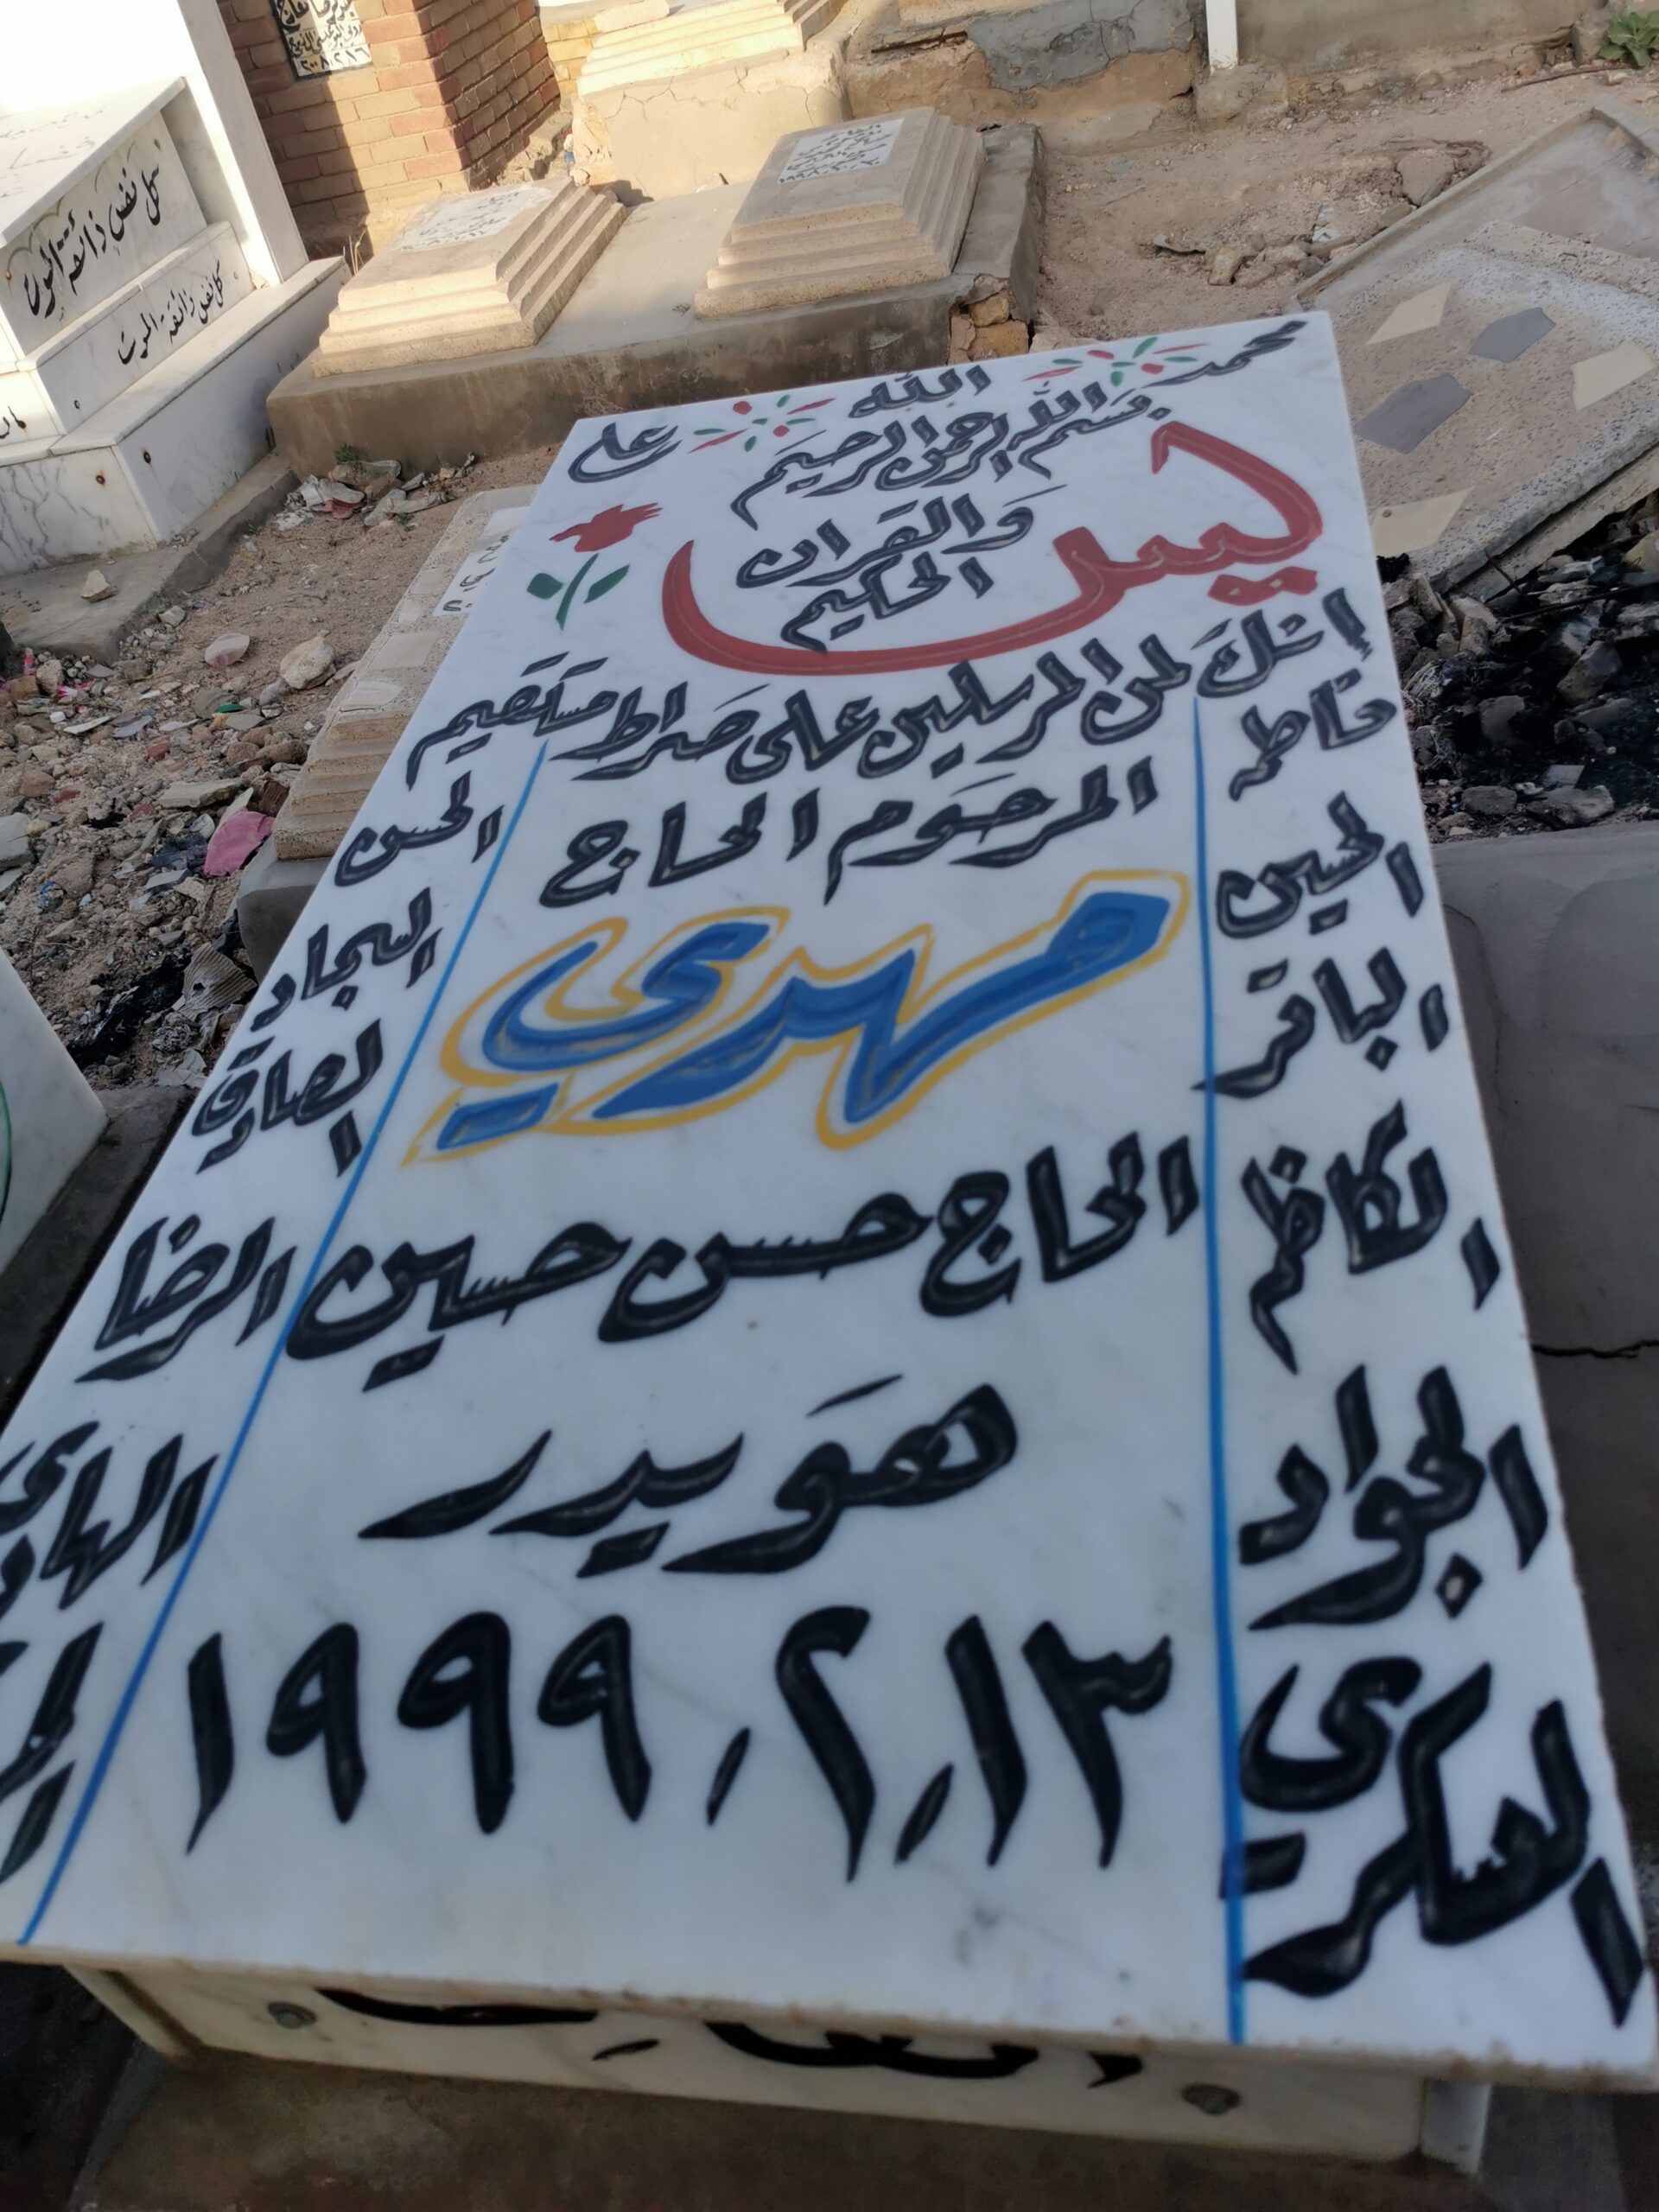 الله
محمد
علي
بسم الله الرحمن الرحيم
يس
والقران
الحكيم
انك لمن المرسلين على صراط مستقيم
فاطمه
الحسن
الحسين
السجاد
الباقر
الصادق
الكاظم
الرضا
الجواد
الهادي
العسكري
المرحوم الحاج
مهدي
الحاج حسن حسين
هويدر
١٣/٢/١٩٩٩
كل نفس ذائقة الموت
كل نفس ذائقة الموت